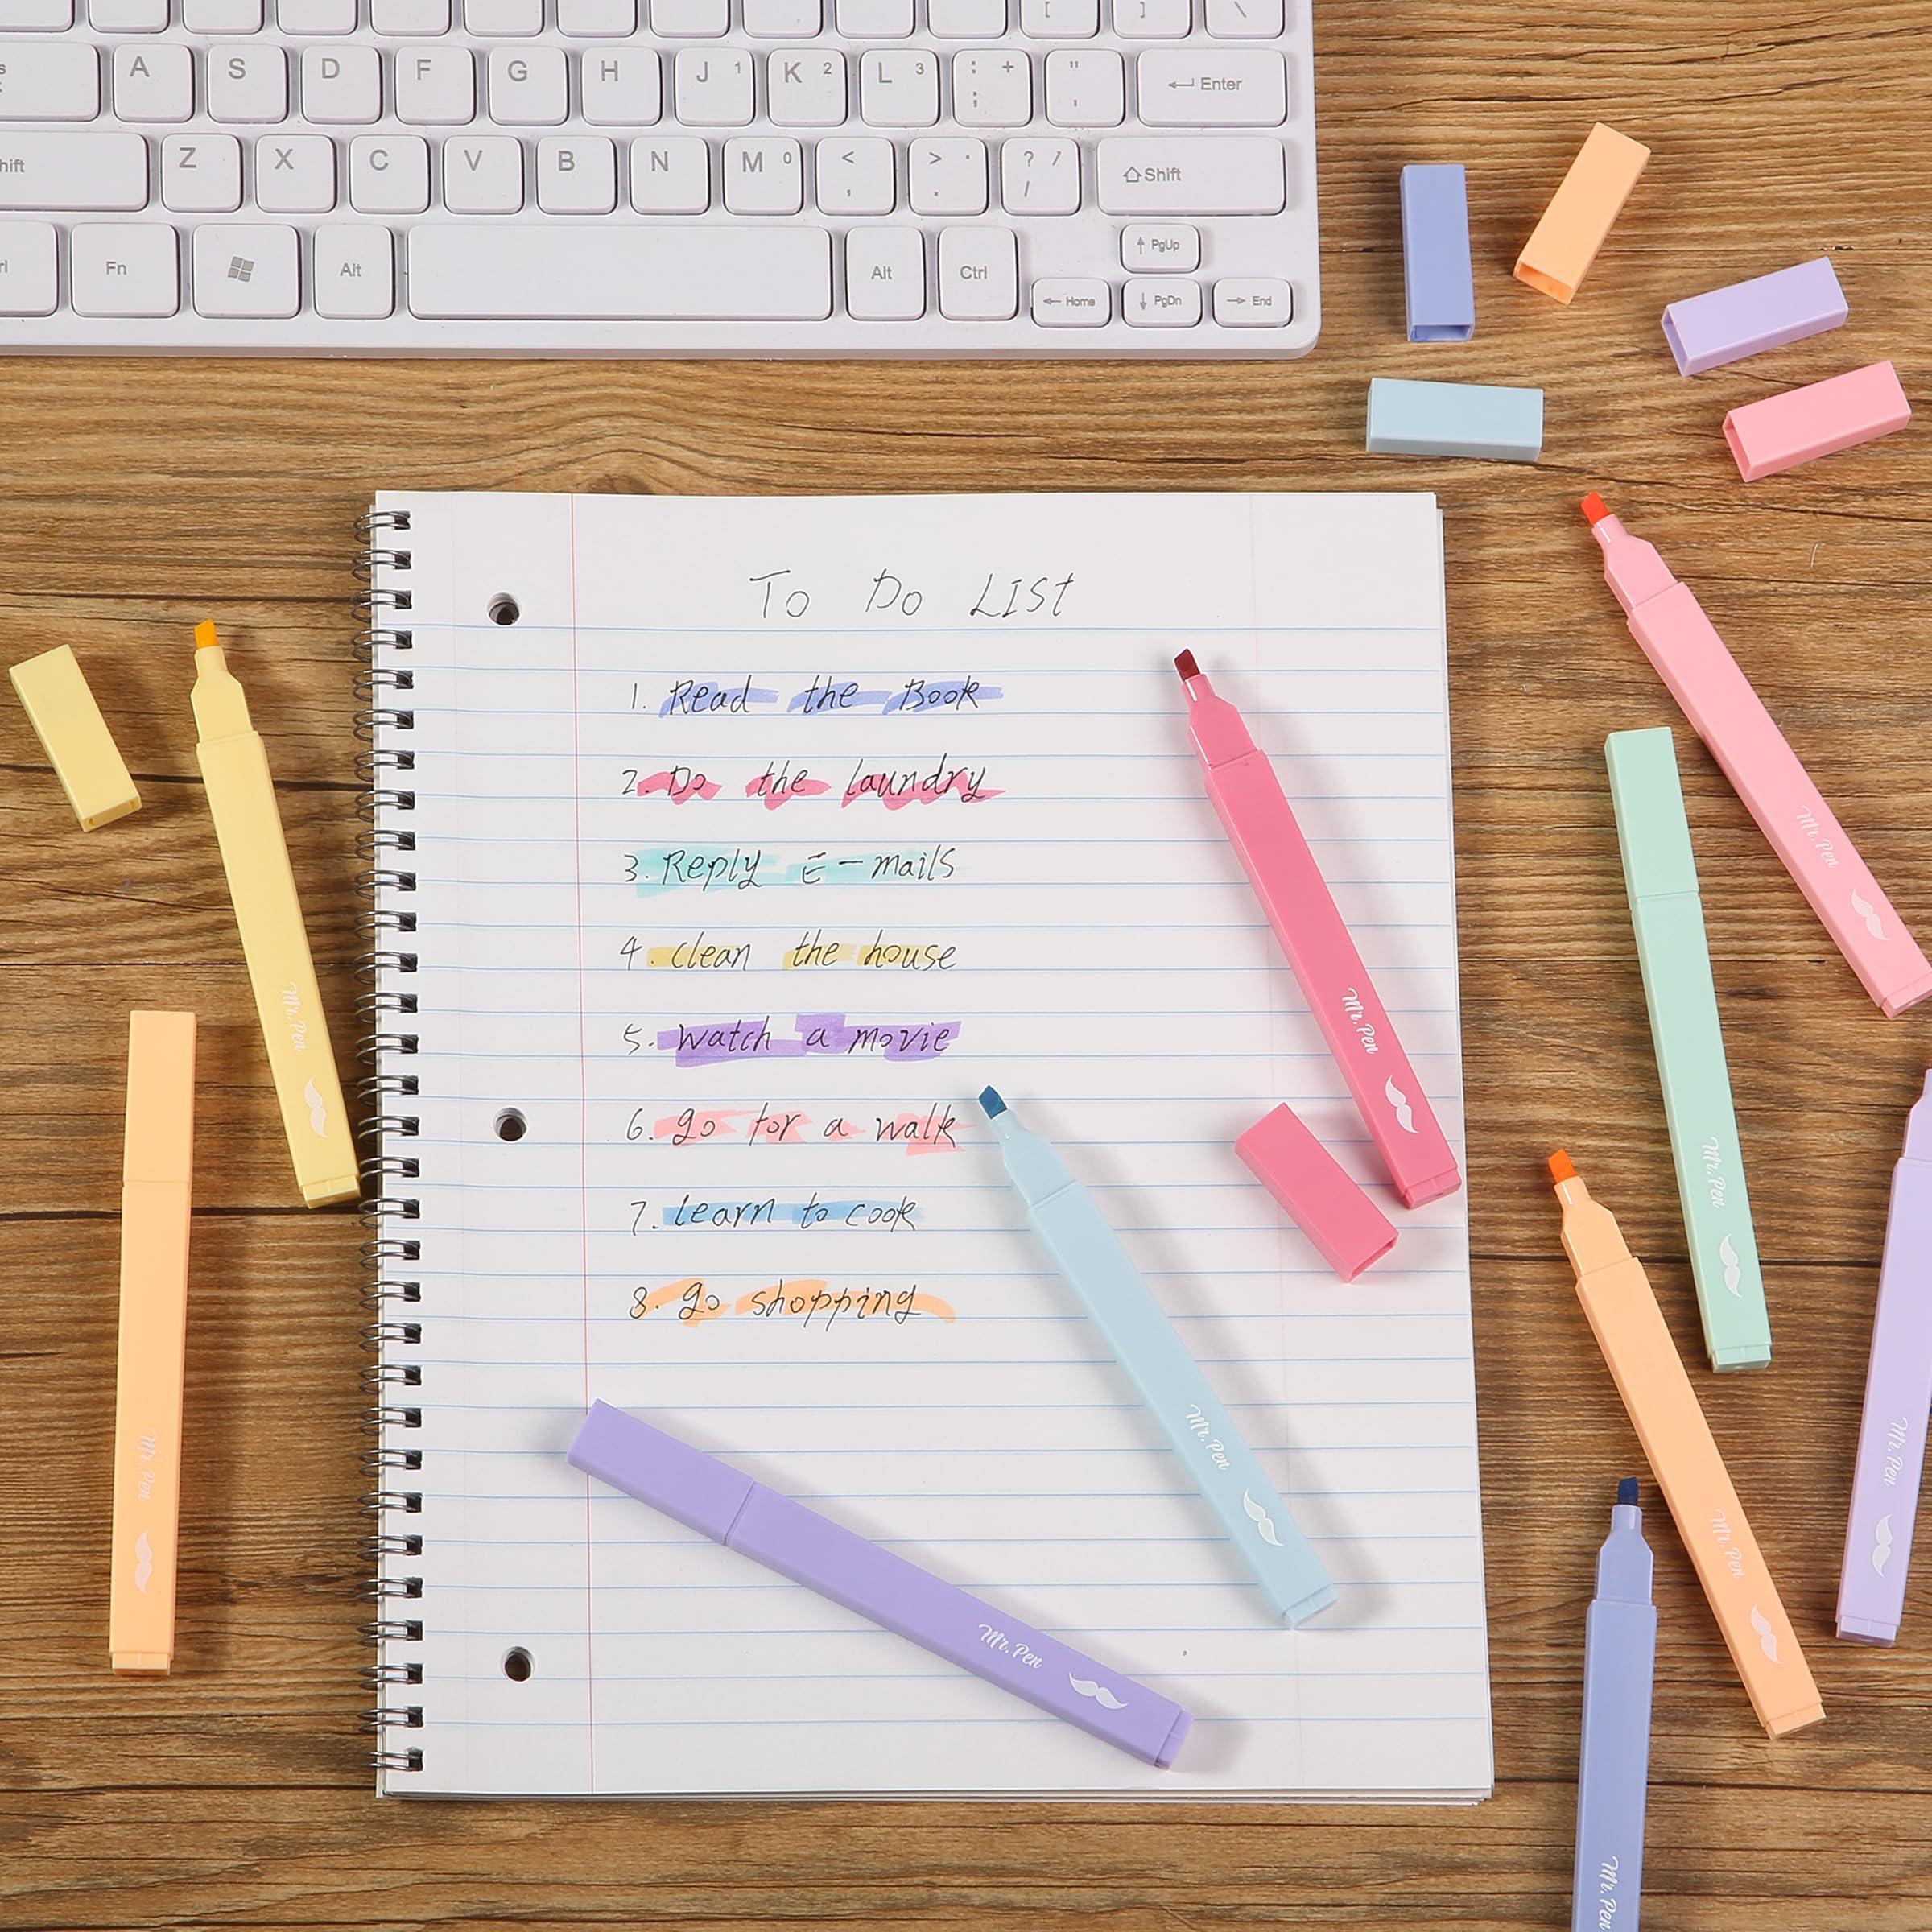 [ ] \
s A S D F G H J 1 K 2 L 3 : + ; " ' Enter
hift Z X C V B N M 0 < , > . ? / / Shift
PgUp
rl Fn Alt Alt Ctrl
Home PgDn End
To Do LIST
1. Read the Book
2. Do the laundry
3. Reply E-mails
4. clean the house
5. watch a movie
6. go for a walk
7. learn to cook
8. go shopping
Mr. Pen
Mr. Pen
Mr. Pen
Mr. Pen
Mr. Pen
Mr. Pen
Mr. Pen
Mr. Pen
Mr. Pen
Mr. Pen